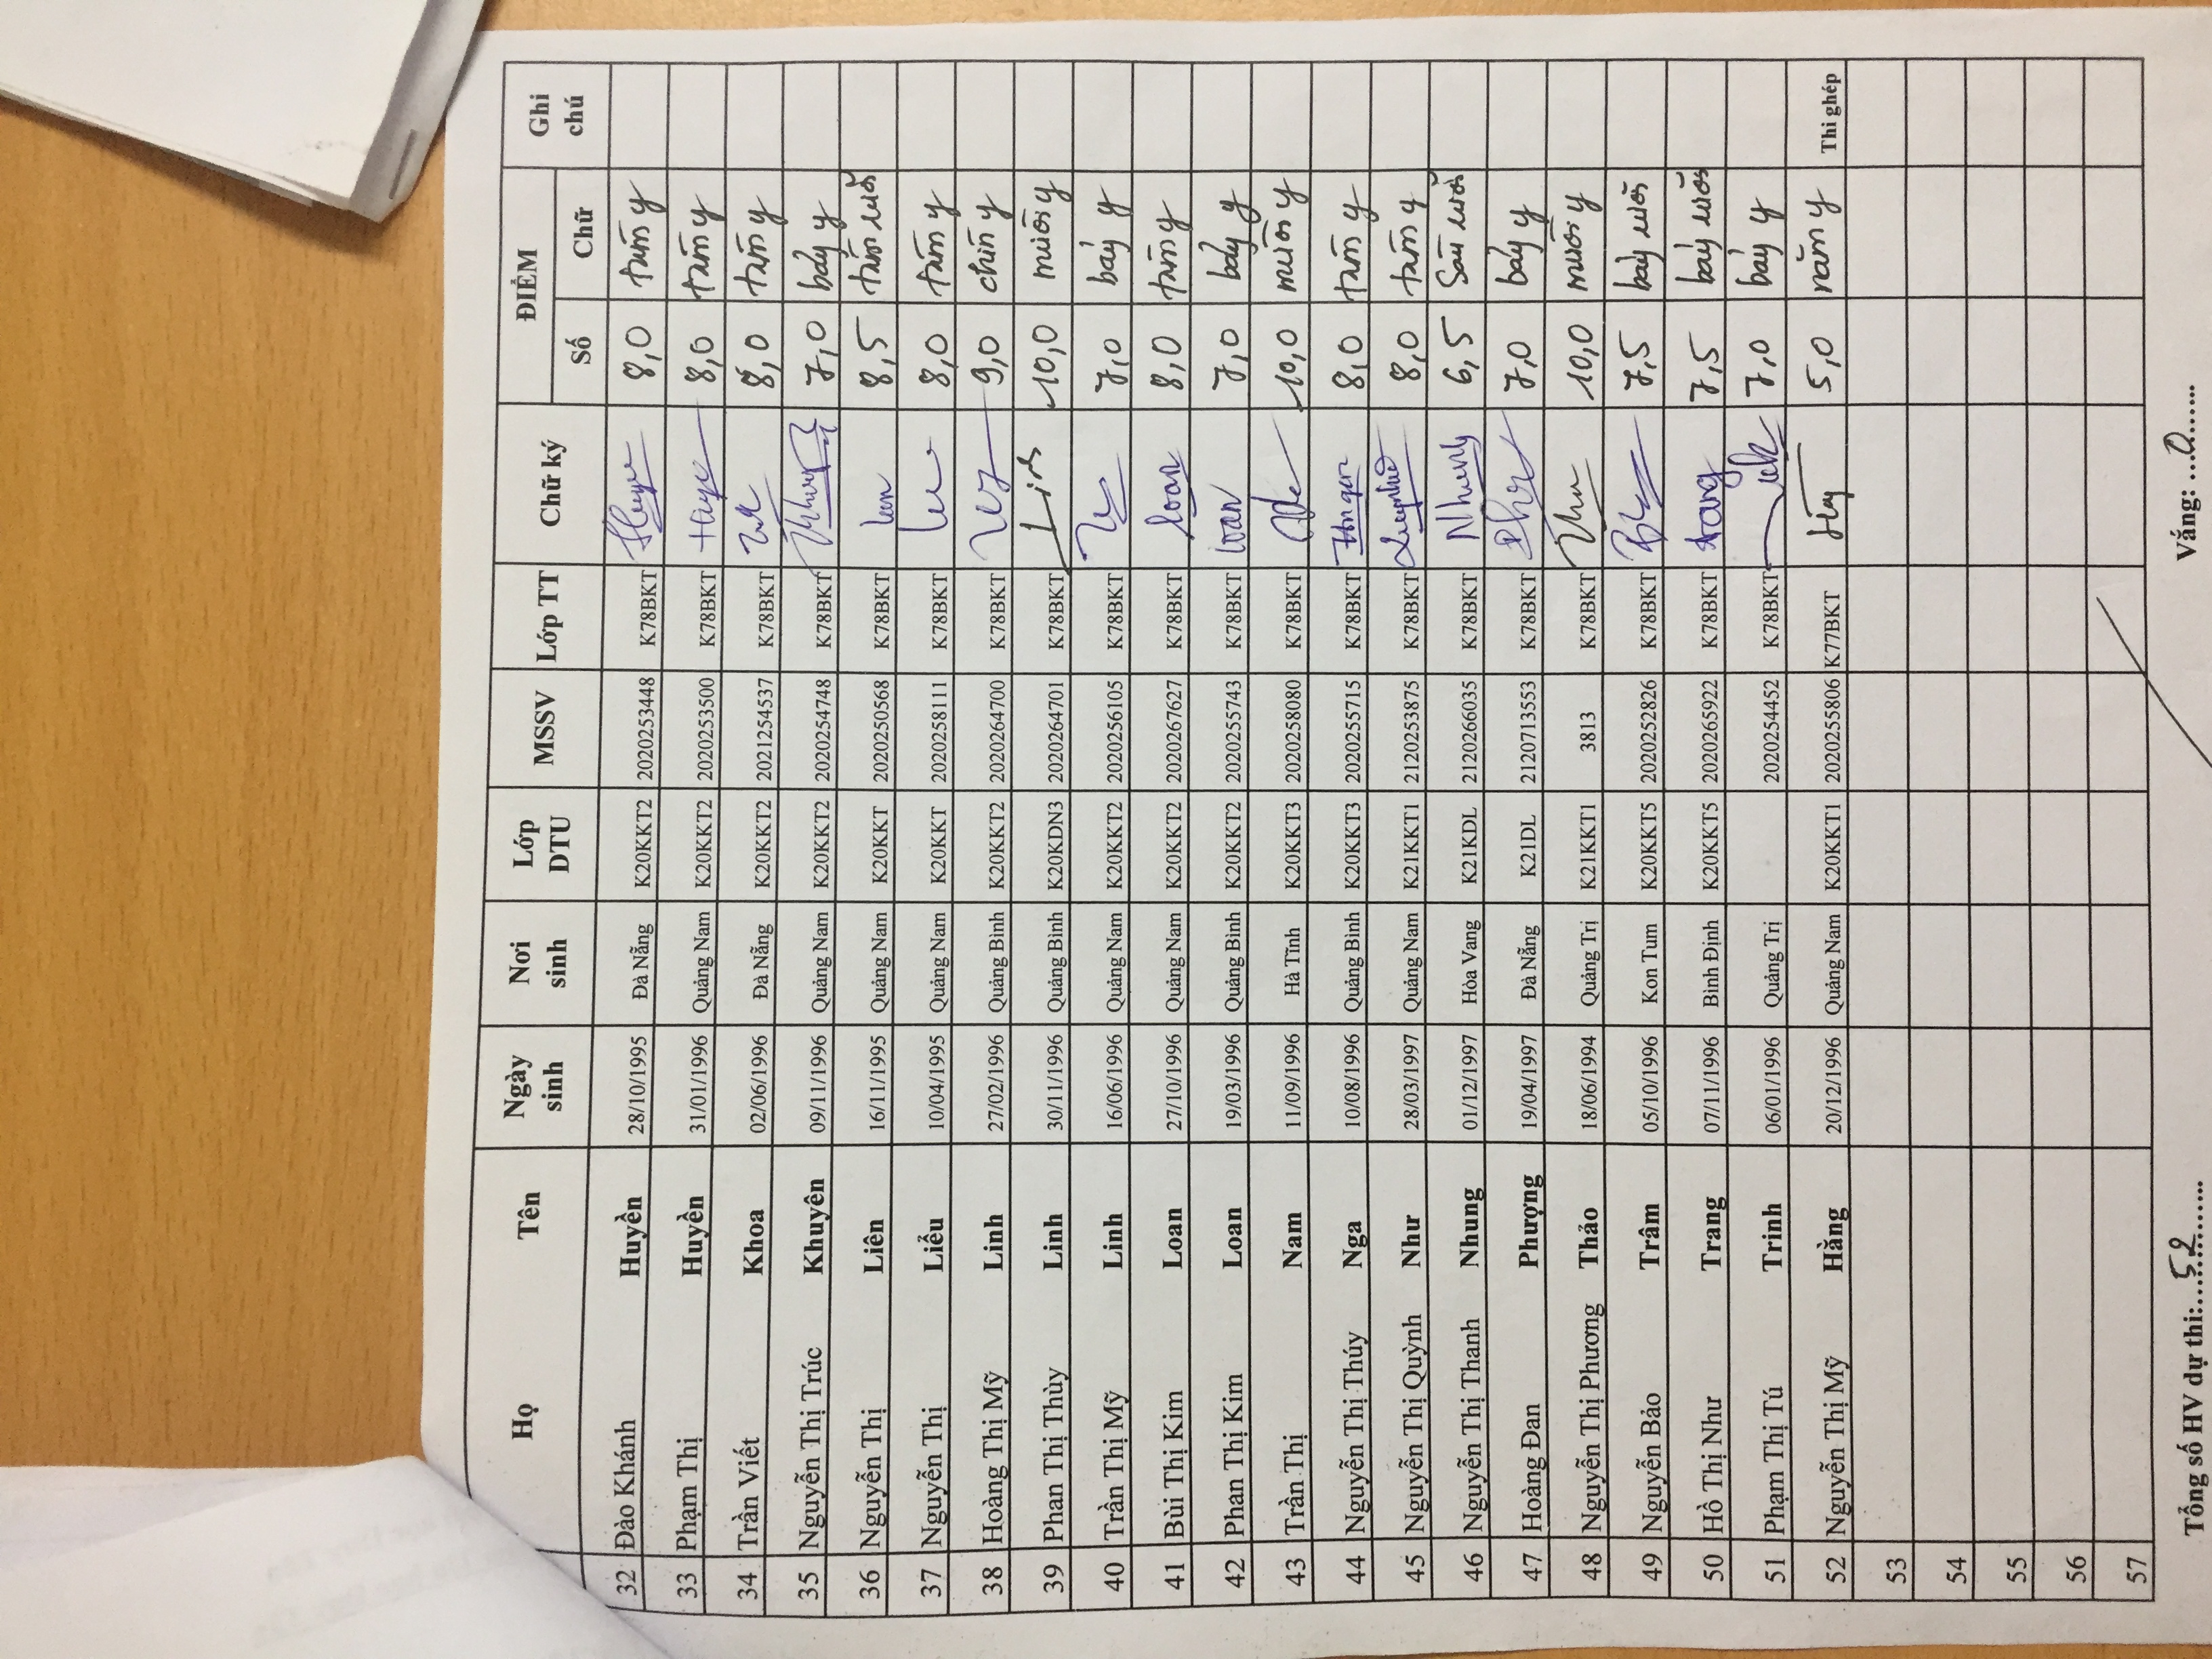 Họ Tên Ngày sinh Nơi sinh Lớp DTU MSSV Lớp TT Chữ ký ĐIỂM Ghi chú
Số Chữ
32 Đào Khánh Huyền 28/10/1995 Đà Nẵng K20KKT2 2020253448 K78BKT 8,0 tám y
33 Phạm Thị Huyền 31/01/1996 Quảng Nam K20KKT2 2020253500 K78BKT 8,0 tám y
34 Trần Viết Khoa 02/06/1996 Đà Nẵng K20KKT2 2021254537 K78BKT 8,0 tám y
35 Nguyễn Thị Trúc Khuyên 09/11/1996 Quảng Nam K20KKT2 2020254748 K78BKT 7,0 bảy y
36 Nguyễn Thị Liên 16/11/1995 Quảng Nam K20KKT 2020250568 K78BKT 8,5 tám rưỡi
37 Nguyễn Thị Liễu 10/04/1995 Quảng Nam K20KKT 2020258111 K78BKT 8,0 tám y
38 Hoàng Thị Mỹ Linh 27/02/1996 Quảng Bình K20KKT2 2020264700 K78BKT 9,0 chín y
39 Phan Thị Thùy Linh 30/11/1996 Quảng Bình K20KDN3 2020264701 K78BKT Linh 10,0 mười y
40 Trần Thị Mỹ Linh 16/06/1996 Quảng Nam K20KKT2 2020256105 K78BKT 7,0 bảy y
41 Bùi Thị Kim Loan 27/10/1996 Quảng Nam K20KKT2 2020267627 K78BKT Loan 8,0 tám y
42 Phan Thị Kim Loan 19/03/1996 Quảng Bình K20KKT2 2020255743 K78BKT Loan 7,0 bảy y
43 Trần Thị Nam 11/09/1996 Hà Tĩnh K20KKT3 2020258080 K78BKT 10,0 mười y
44 Nguyễn Thị Thúy Nga 10/08/1996 Quảng Bình K20KKT3 2020255715 K78BKT 8,0 tám y
45 Nguyễn Thị Quỳnh Như 28/03/1997 Quảng Nam K21KKT1 2120253875 K78BKT 8,0 tám y
46 Nguyễn Thị Thanh Nhung 01/12/1997 Hòa Vang K21KDL 2120266035 K78BKT Nhung 6,5 Sáu rưỡi
47 Hoàng Đan Phượng 19/04/1997 Đà Nẵng K21DL 2120713553 K78BKT 7,0 bảy y
48 Nguyễn Thị Phương Thảo 18/06/1994 Quảng Trị K21KKT1 3813 K78BKT 10,0 mười y
49 Nguyễn Bảo Trâm 05/10/1996 Kon Tum K20KKT5 2020252826 K78BKT 7,5 bảy rưỡi
50 Hồ Thị Như Trang 07/11/1996 Bình Định K20KKT5 2020265922 K78BKT trang 7,5 bảy rưỡi
51 Phạm Thị Tú Trinh 06/01/1996 Quảng Trị 2020254452 K78BKT 7,0 bảy y
52 Nguyễn Thị Mỹ Hằng 20/12/1996 Quảng Nam K20KKT1 2020255806 K77BKT 5,0 năm y Thi ghép
53
54
55
56
57
Tổng số HV dự thi:....52........ Vắng: ...0......